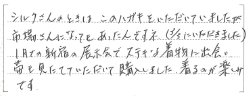 シルクさんのときは このハガキをいただいていましたが
市場さんになっても あったんですネ (3/5にいただきました)
1月での新宿の展示会で 大すきな着物に出会い
帯も見たてていただいて購入しました 着るのが楽しみ
です